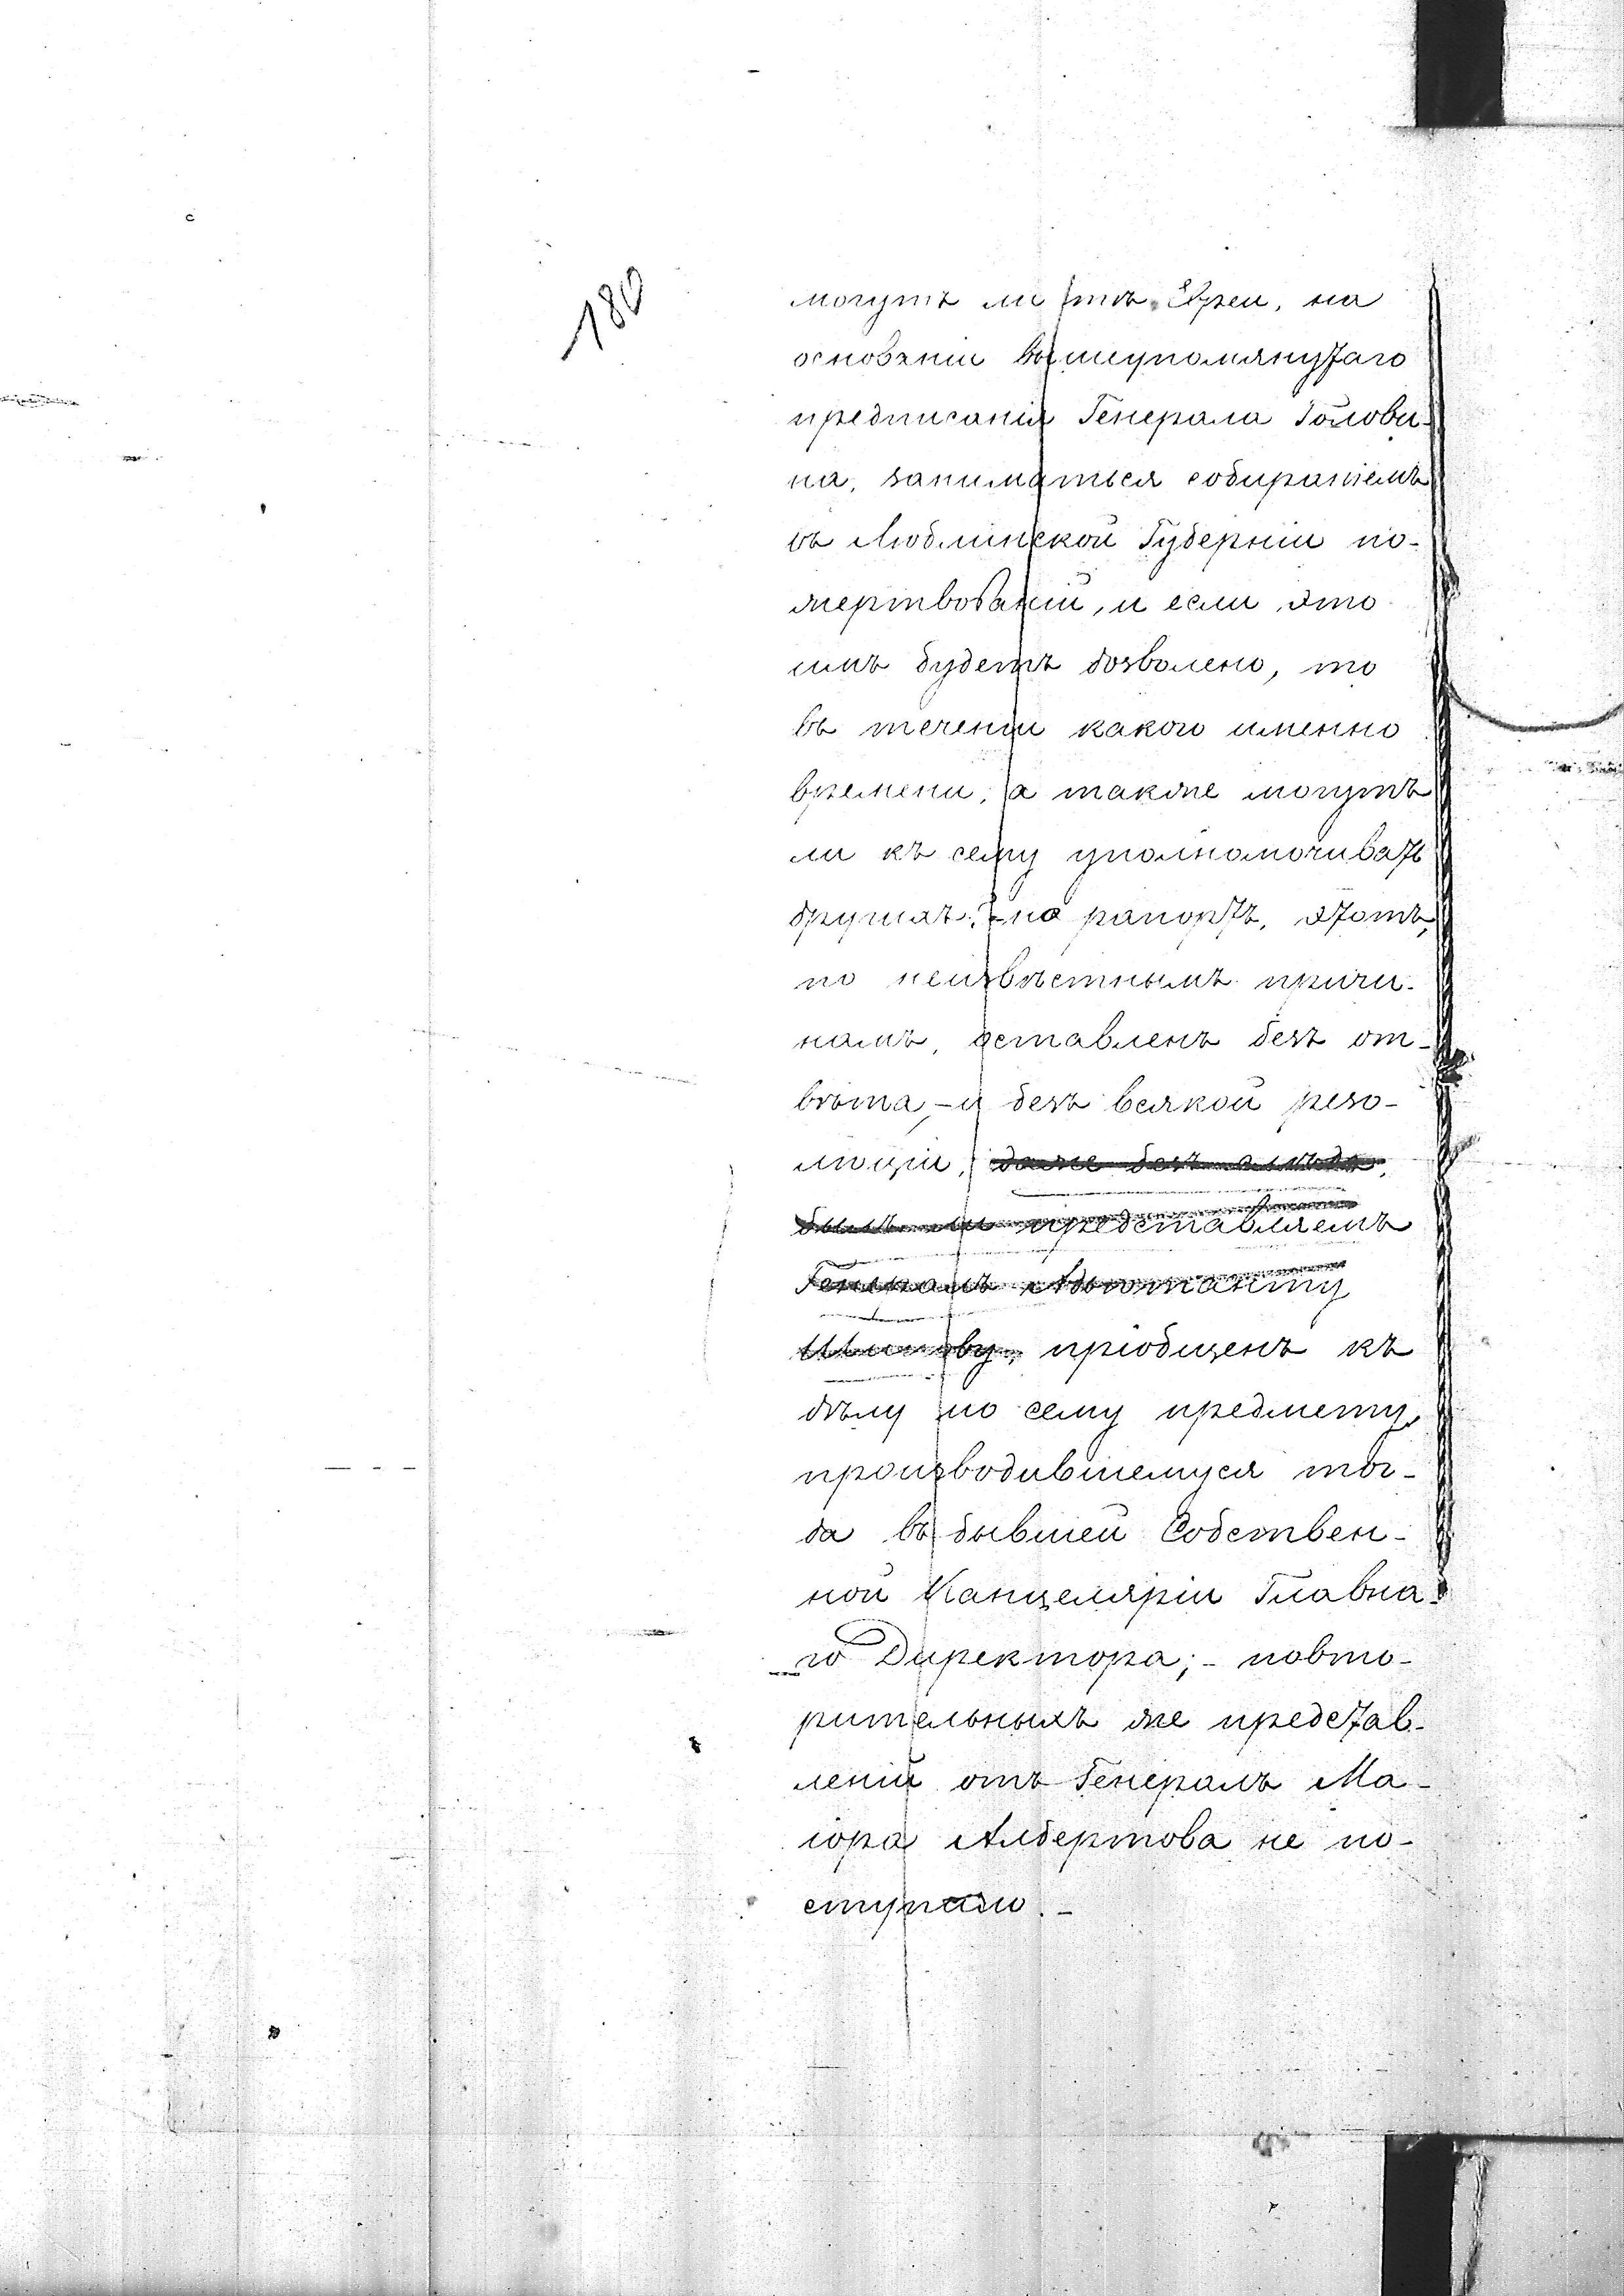 180
могутъ ли тѣ Евреи, на
основаніи вышеупомянутаго
предписанія Генерала Голови-
на, заниматься собираніемъ
въ Люблинской Губерніи по-
жертвованій, и если это
имъ будетъ дозволено, то
въ теченіи какого именно
времени, а также могутъ
ли къ сему уполномочивать
другихъ? - но рапортъ, этотъ,
по неизвѣстнымъ причи-
намъ, оставленъ безъ от-
вѣта, - и безъ всякой резо-
люціи, даже безъ слѣда,
былъ ли представляемъ
Генералъ Адъютанту
Шипову, пріобщенъ къ
дѣлу по сему предмету,
производившемуся тог-
да въ бывшей Собствен-
ной Канцеляріи Главна-
го Директора; - повто-
рительныхъ же представ-
леній отъ Генералъ Ма-
іора Албертова не по-
ступало. -